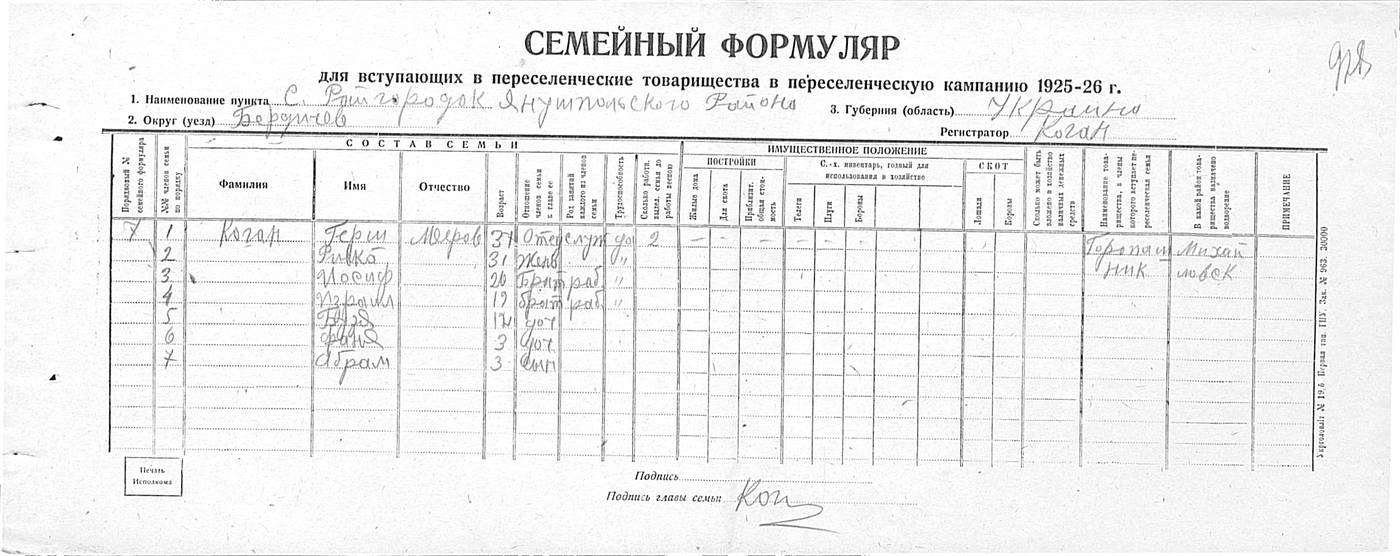 СЕМЕЙНЫЙ ФОРМУЛЯР
978
для вступающих в переселенческие товарищества в переселенческую кампанию 1925-26 г.
1. Наименование пункта С. Райгородок Янушпольского Района 3. Губерния (область) Украина
2. Округ (уезд) Бердичев Регистратор Коган
СОСТАВ СЕМЬИ ИМУЩЕСТВЕННОЕ ПОЛОЖЕНИЕ
ПОСТРОЙКИ С.-х. инвентарь, годный для использования в хозяйстве СКОТ
Порядковый № семейного формуляра №№ членов семьи по порядку Фамилия Имя Отчество Возраст Отношение членов семьи к главе ее Род занятий каждого из членов семьи Трудоспособность Сколько работн. выдел. семья до работы весною Жилые дома Для скота Приблизит. общая стоимость Телеги Плуги Бороны Лошади Коровы Сколько может быть вложено в хозяйство наличных денежных средств Наименование товарищества, в члены которого вступает переселенческая семья В какой район товарищества назначено водворение ПРИМЕЧАНИЕ
7 1 Коган Герш Мееров 37 Отец служ да 2 – – – – – – – – Горопаш Михай
2 Ривка 31 Жена " ник ловск
3 Иосиф 20 Брат раб. "
4 Израил 19 брат раб. "
5 Бузя 12 доч
6 Фаня 3 доч
7 Абрам 3 Сын
Печать
Исполкома
Подпись
Подпись главы семьи Ког
Укрголовліт № 19,6 Первая тип. ГПУ. Зак. № 963. 30000